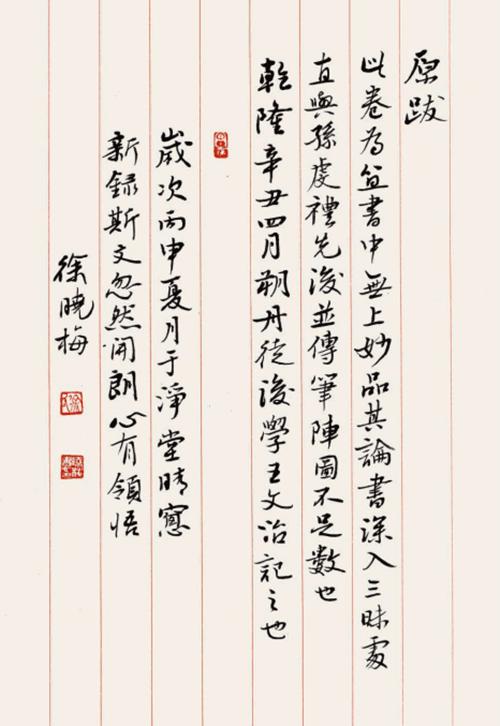 原跋
此卷為笪書中無上妙品其論書深入三昧處
直與孫虔禮先後並傳筆陣圖不足數也
乾隆辛丑四月朔丹徒後學王文治記之也
歲次丙申夏月于淨堂晴窓
新錄斯文忽然開朗心有領悟
徐曉梅